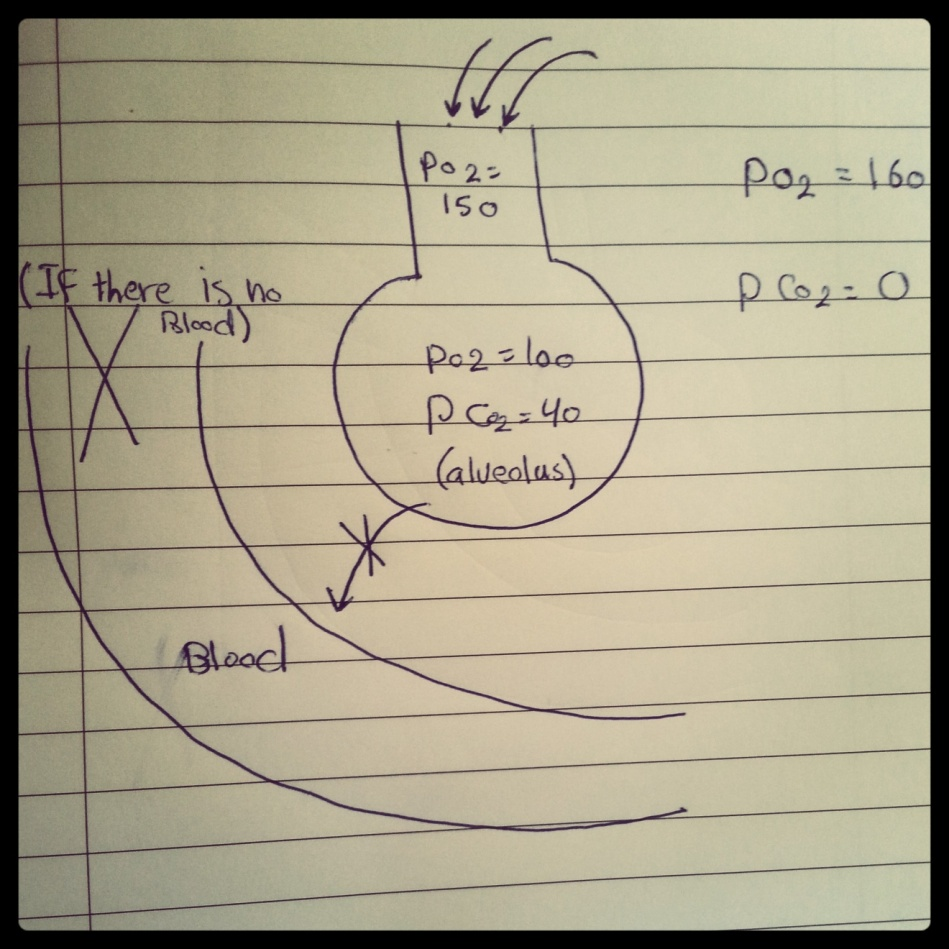 Po2=
150
Po2 = 160
(If there is no
Blood)
PCo2 = 0
Po2 = 100
PCo2 = 40
(alveolus)
Blood